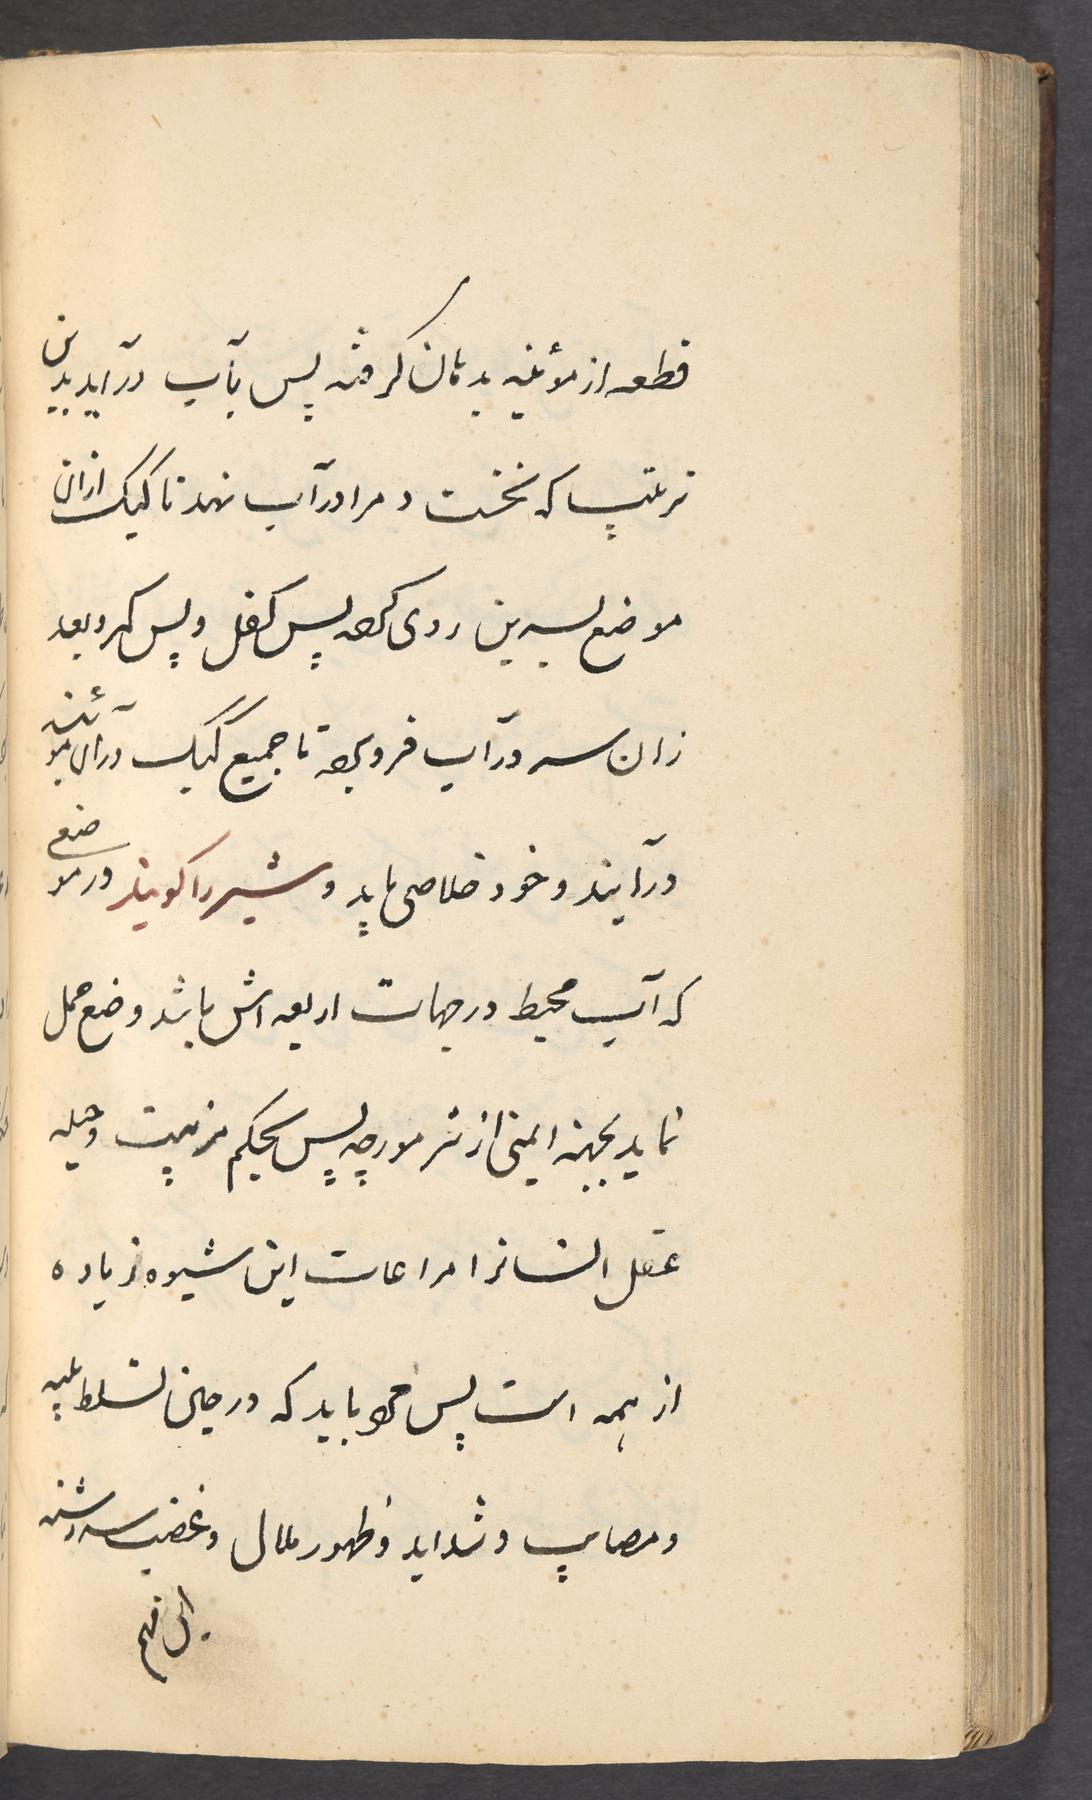 قطعه از موئینه بدهان گرفته پس بآب درآید بدین
ترتیب که نخست دم را در آب نهد تا کیک ازان
موضع بسرین روی کرده پس کفل و پس کمر و بعد
زان سر در آب فرو برده تا جمیع کیک در آن موئینه
درآیند و خود خلاصی یابد و شیر را گویند در موضعی
که آب محیط در جهات اربعه اش باشد وضع حمل
نماید بجهة ایمنی از شر مورچه پس بحکم مزیت وحیله
عقل انسانرا مراعات این شیوه زیاده
از همه است پس باید که در حین تسلط بلیه
و مصایب و شداید و ظهور ملال و غضب سر رشته
این فهم